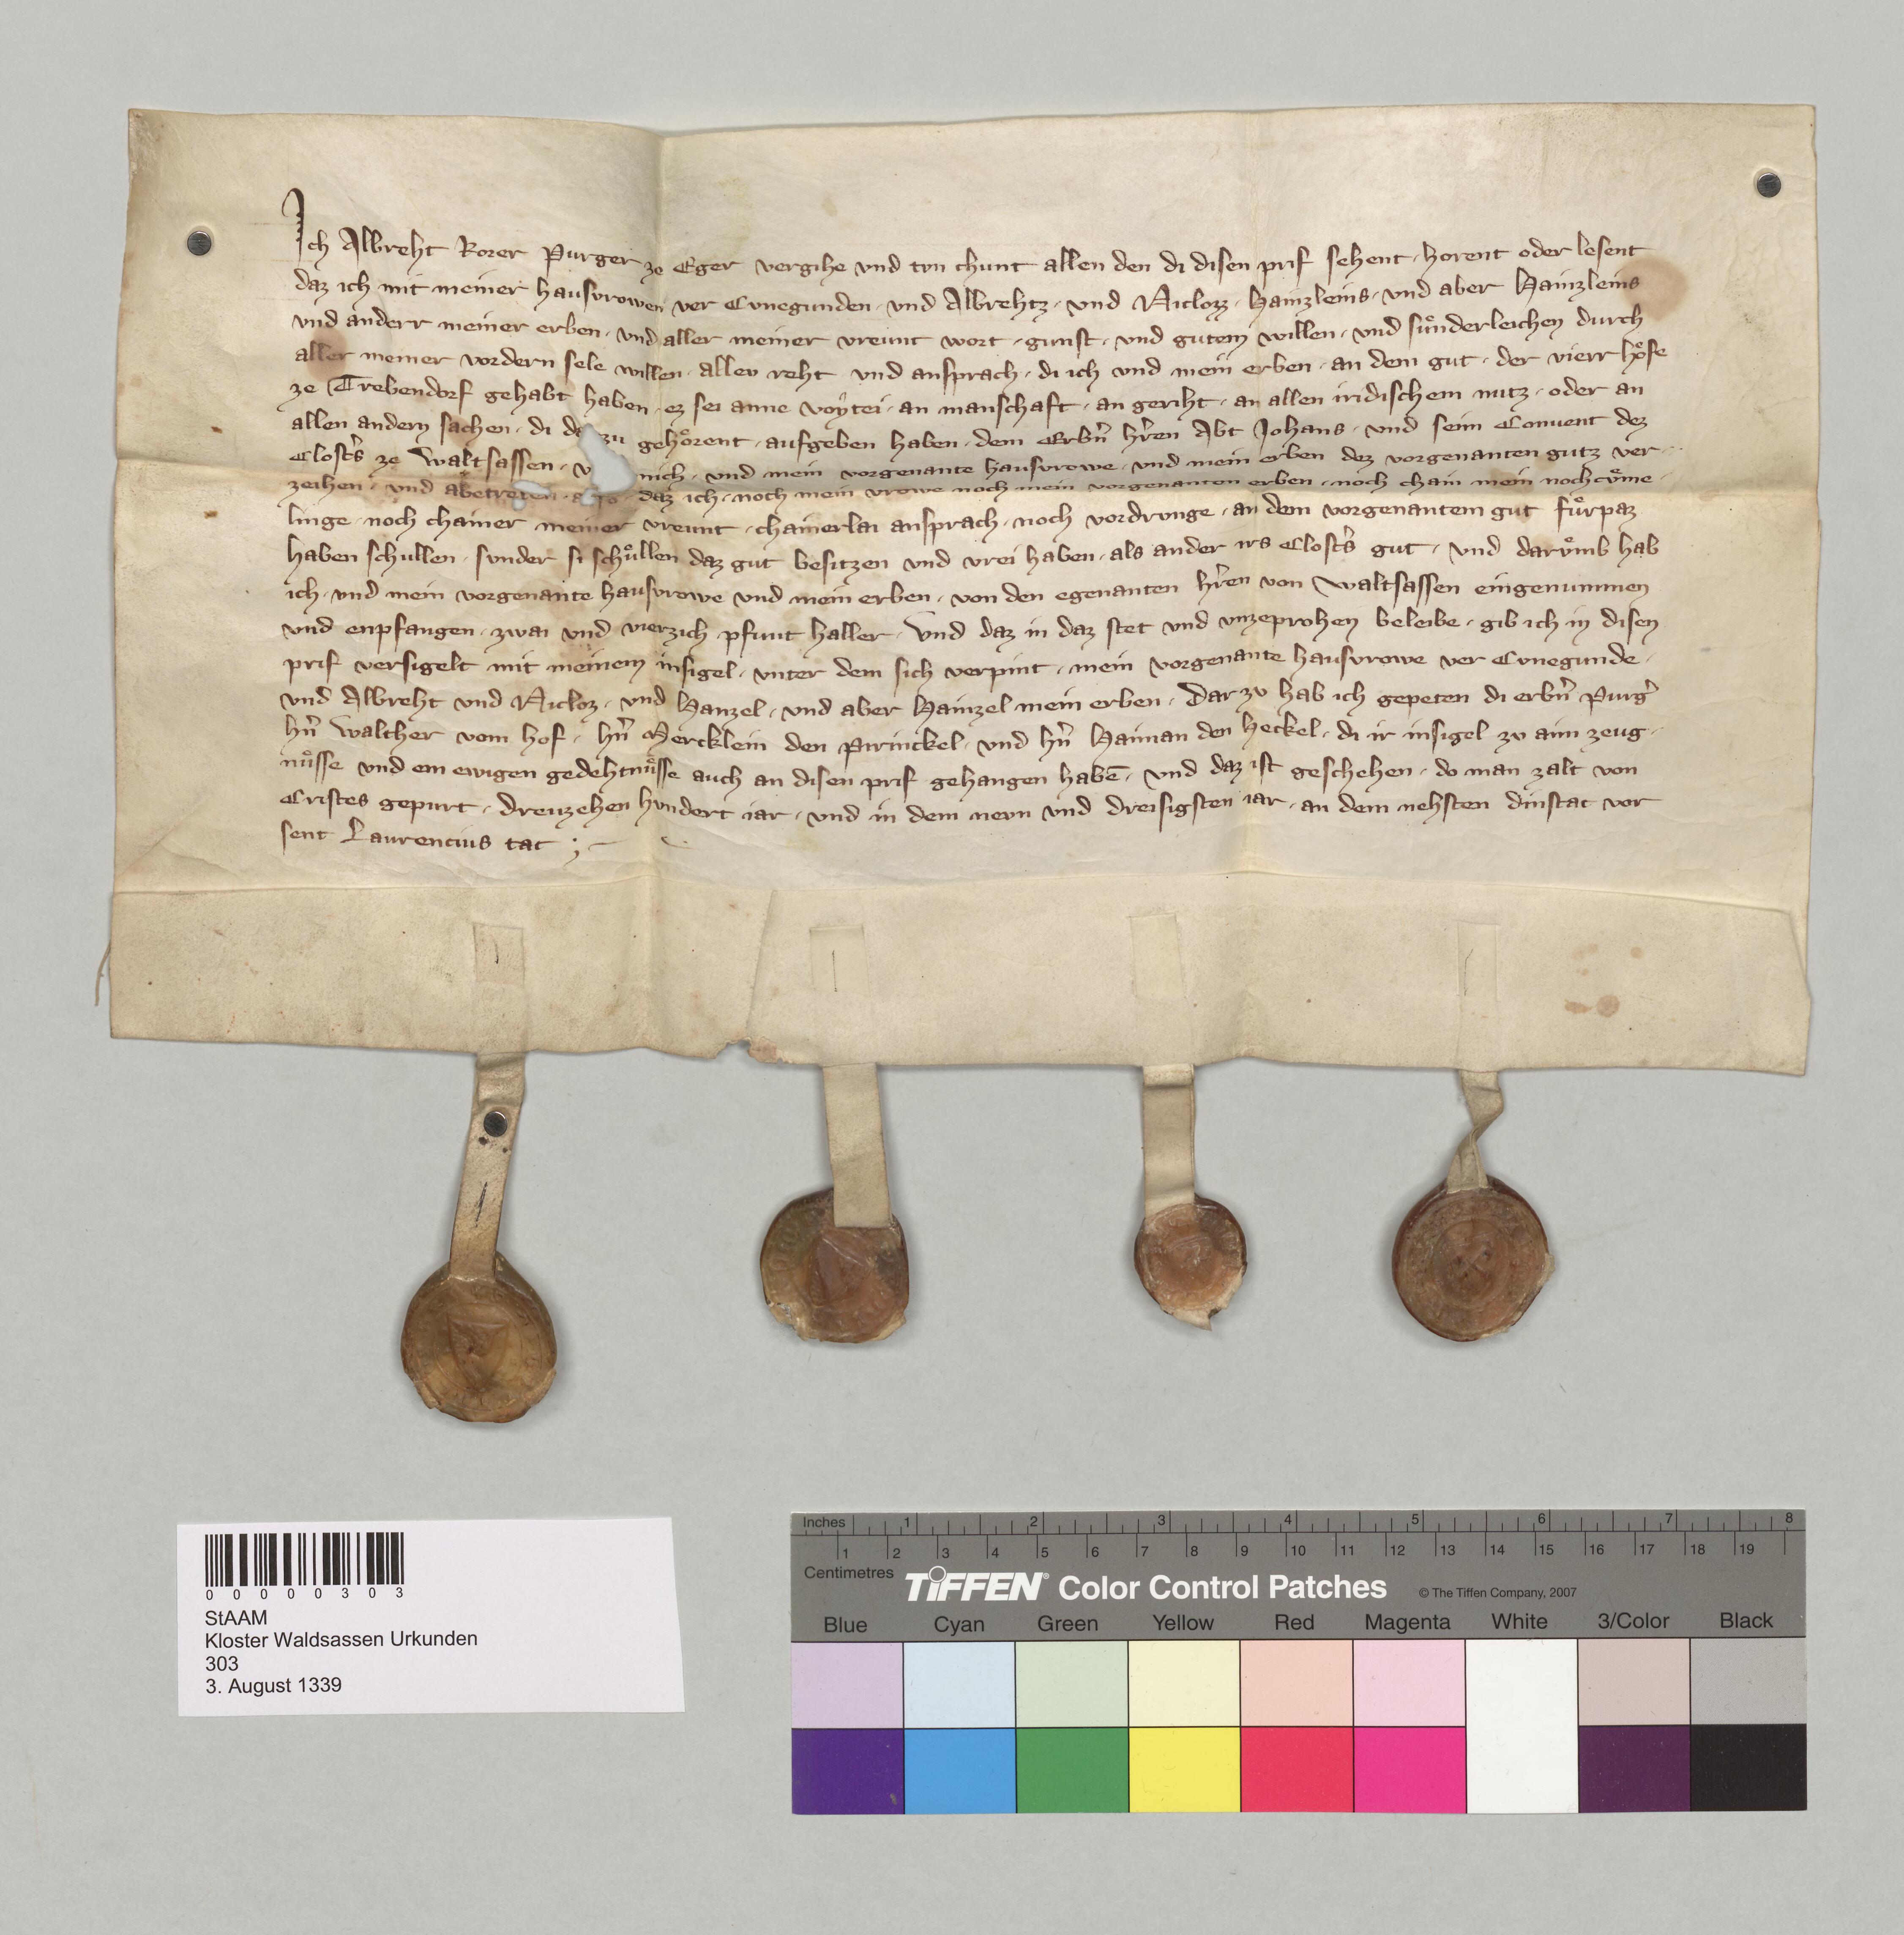 Ich Albreht Rorer Purger ze Eger vergihe vnd tvn chunt allen den di disen prif sehent · horent oder lesent
daz ich mit meiner hausvrowen ver Cvnegunden · vnd Albrehtz · vnd Niclozz · Hainzleins · vnd aber Hainzleins
vnd anderr meiner erben · vnd aller meiner vreunt wort · gunst · vnd gutem willen · vnd suͤnderleichen durch
aller meiner vordern sele willen · allev reht vnd ansprach · di ich vnd mein erben · an dem gut · der vierr hoͤfe
ze Trebendorf gehabt haben · ez sei anne voytei · an manschaft · an geriht · an allen iridischem nutz · oder an
allen andern sachen · di dar zu gehoͤrent · aufgeben haben · dem Erbn̄ hr̄en Abt Johans · vnd seim Conuent dez
Closters ze Waltsassen · mich · vnd mein vorgenante hausvrowe · vnd mein erben dez vorgenanten gutz ver-
zeihen · vnd abetreten · also · daz ich · noch mein vrowe noch mein vorgenanten erben · noch chain mein nochcvͤme-
linge · noch chainer meiner vreunt · chainerlai ansprach · noch vordrvnge · an dem vorgenantem gut fuͤrpaz
haben schullen · svnder si schuͤllen daz gut besitzen vnd vrei haben · als ander irs Closters gut · Vnd darvͤmb hab
ich · vnd mein vorgenante hausvrowe vnd mein erben · von den egenanten hr̄en von Waltsassen eingenummen
vnd enpfangen · zwai vnd vierzich pfunt haller · Vnd daz in daz stet vnd vnzeprohen beleibe · gib ich in disen
prif versigelt mit meinem insigel · vnter dem sich verpint · mein vorgenante hausvrowe ver Cvnegunde ·
vnd Albreht vnd Nicloz · vnd Hanzel · vnd aber Hainzel mein erben · Dar zv hab ich gepeten di erbn̄ Purḡ
hn̄ Walther vom Hof · hn̄ Mercklein den Pirinckel · vnd hn̄ Haiman den Heckel · di ir insigel zv aim zeug-
nuͤsse vnd em ewigen gedehtnuͤsse auch an disen prif gehangen habē · Vnd daz ist geschehen · do man zalt von
Cristes gepurt · drenzehen hvndert iar · vnd in dem nevn vnd dreisigsten iar · an dem nehsten dinstac vor
sent Laurencius tac ;
0 0 0 0 0 3 0 3
StAAM
Kloster Waldsassen Urkunden
303
3. August 1339
Inches 1 2 3 4 5 6 7 8
1 2 3 4 5 6 7 8 9 10 11 12 13 14 15 16 17 18 19
Centimetres
TIFFEN® Color Control Patches © The Tiffen Company, 2007
Blue Cyan Green Yellow Red Magenta White 3/Color Black